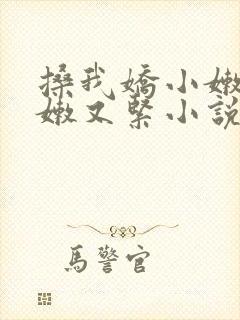 搡我嬌小嫩
嫩又緊小說
馬警官